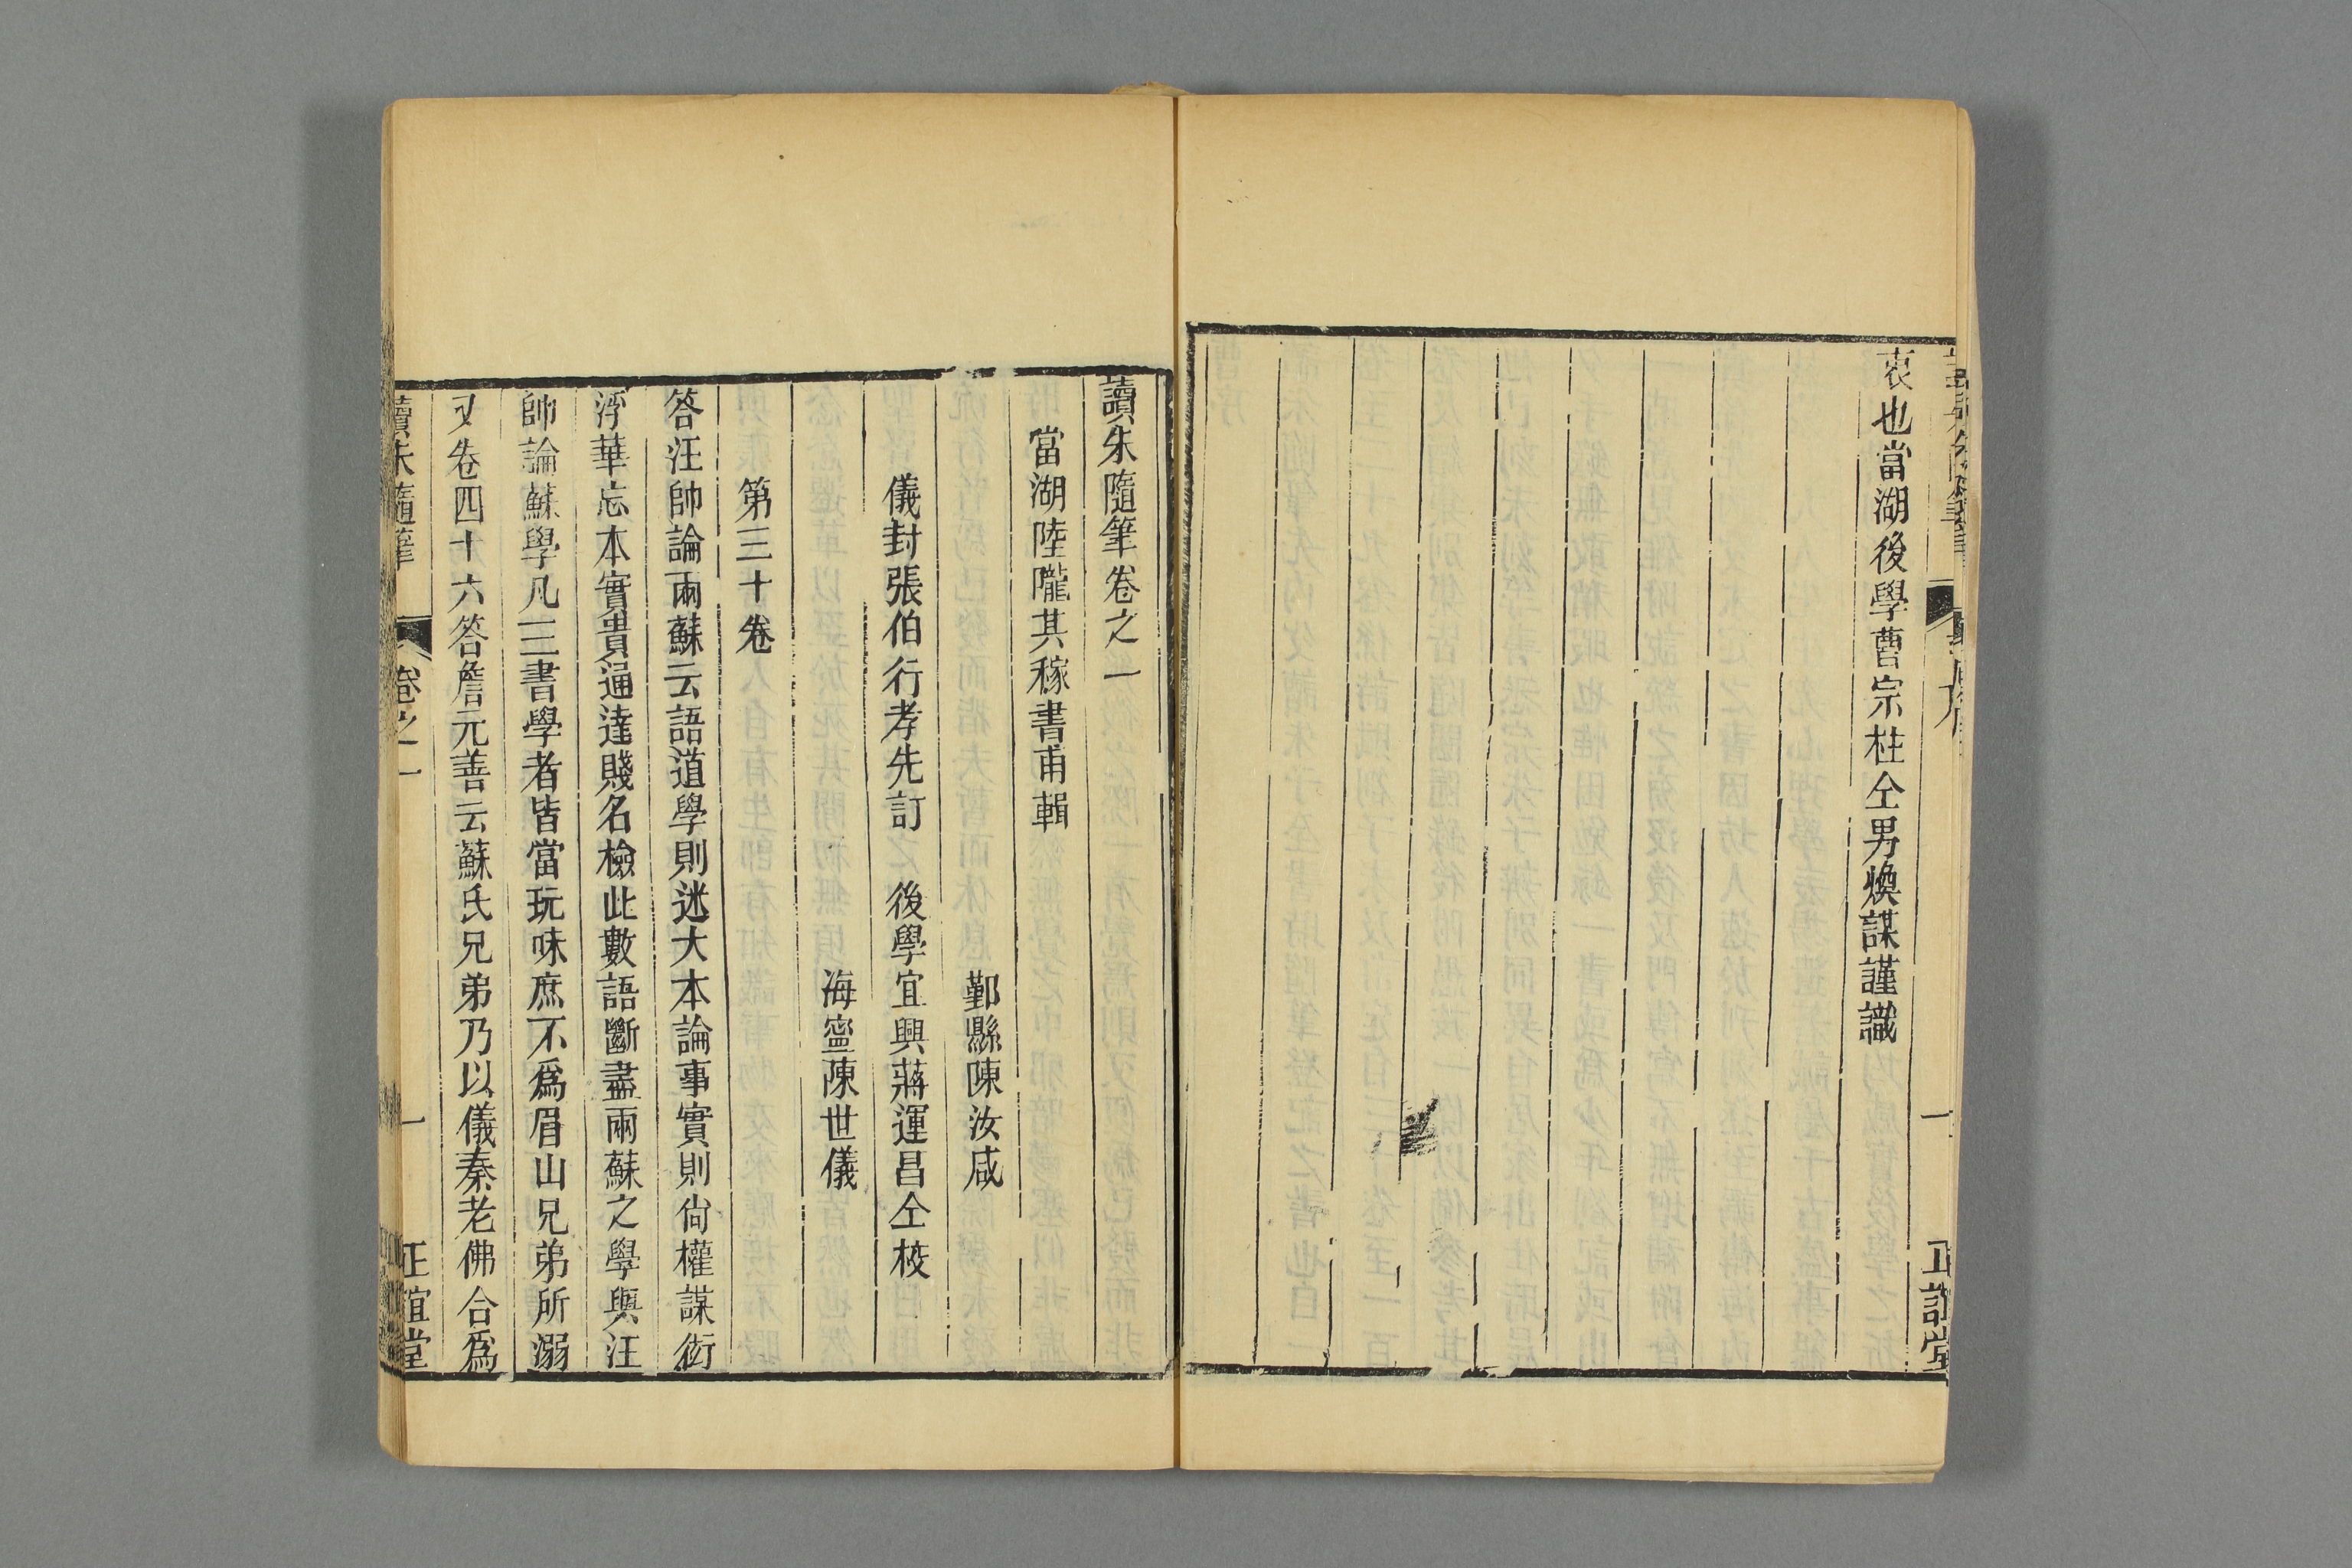 衷也當湖後學曹宗柱仝男煥謀謹識
讀朱隨筆卷之一
當湖陸隴其稼書甫輯
鄞縣陳汝咸
儀封張伯行孝先訂 後學宜興蔣運昌仝校
海寧陳世儀
第三十卷
答汪帥論兩蘇云語道學則迷大本論事實則尙權謀衒
浮華忘本實貴通達賤名檢此數語斷盡兩蘇之學與汪
帥論蘇學凡三書學者皆當玩味庶不爲眉山兄弟所溺
又卷四十六答詹元善云蘇氏兄弟乃以儀秦老佛合爲
讀朱隨筆 卷之一 一 正誼堂